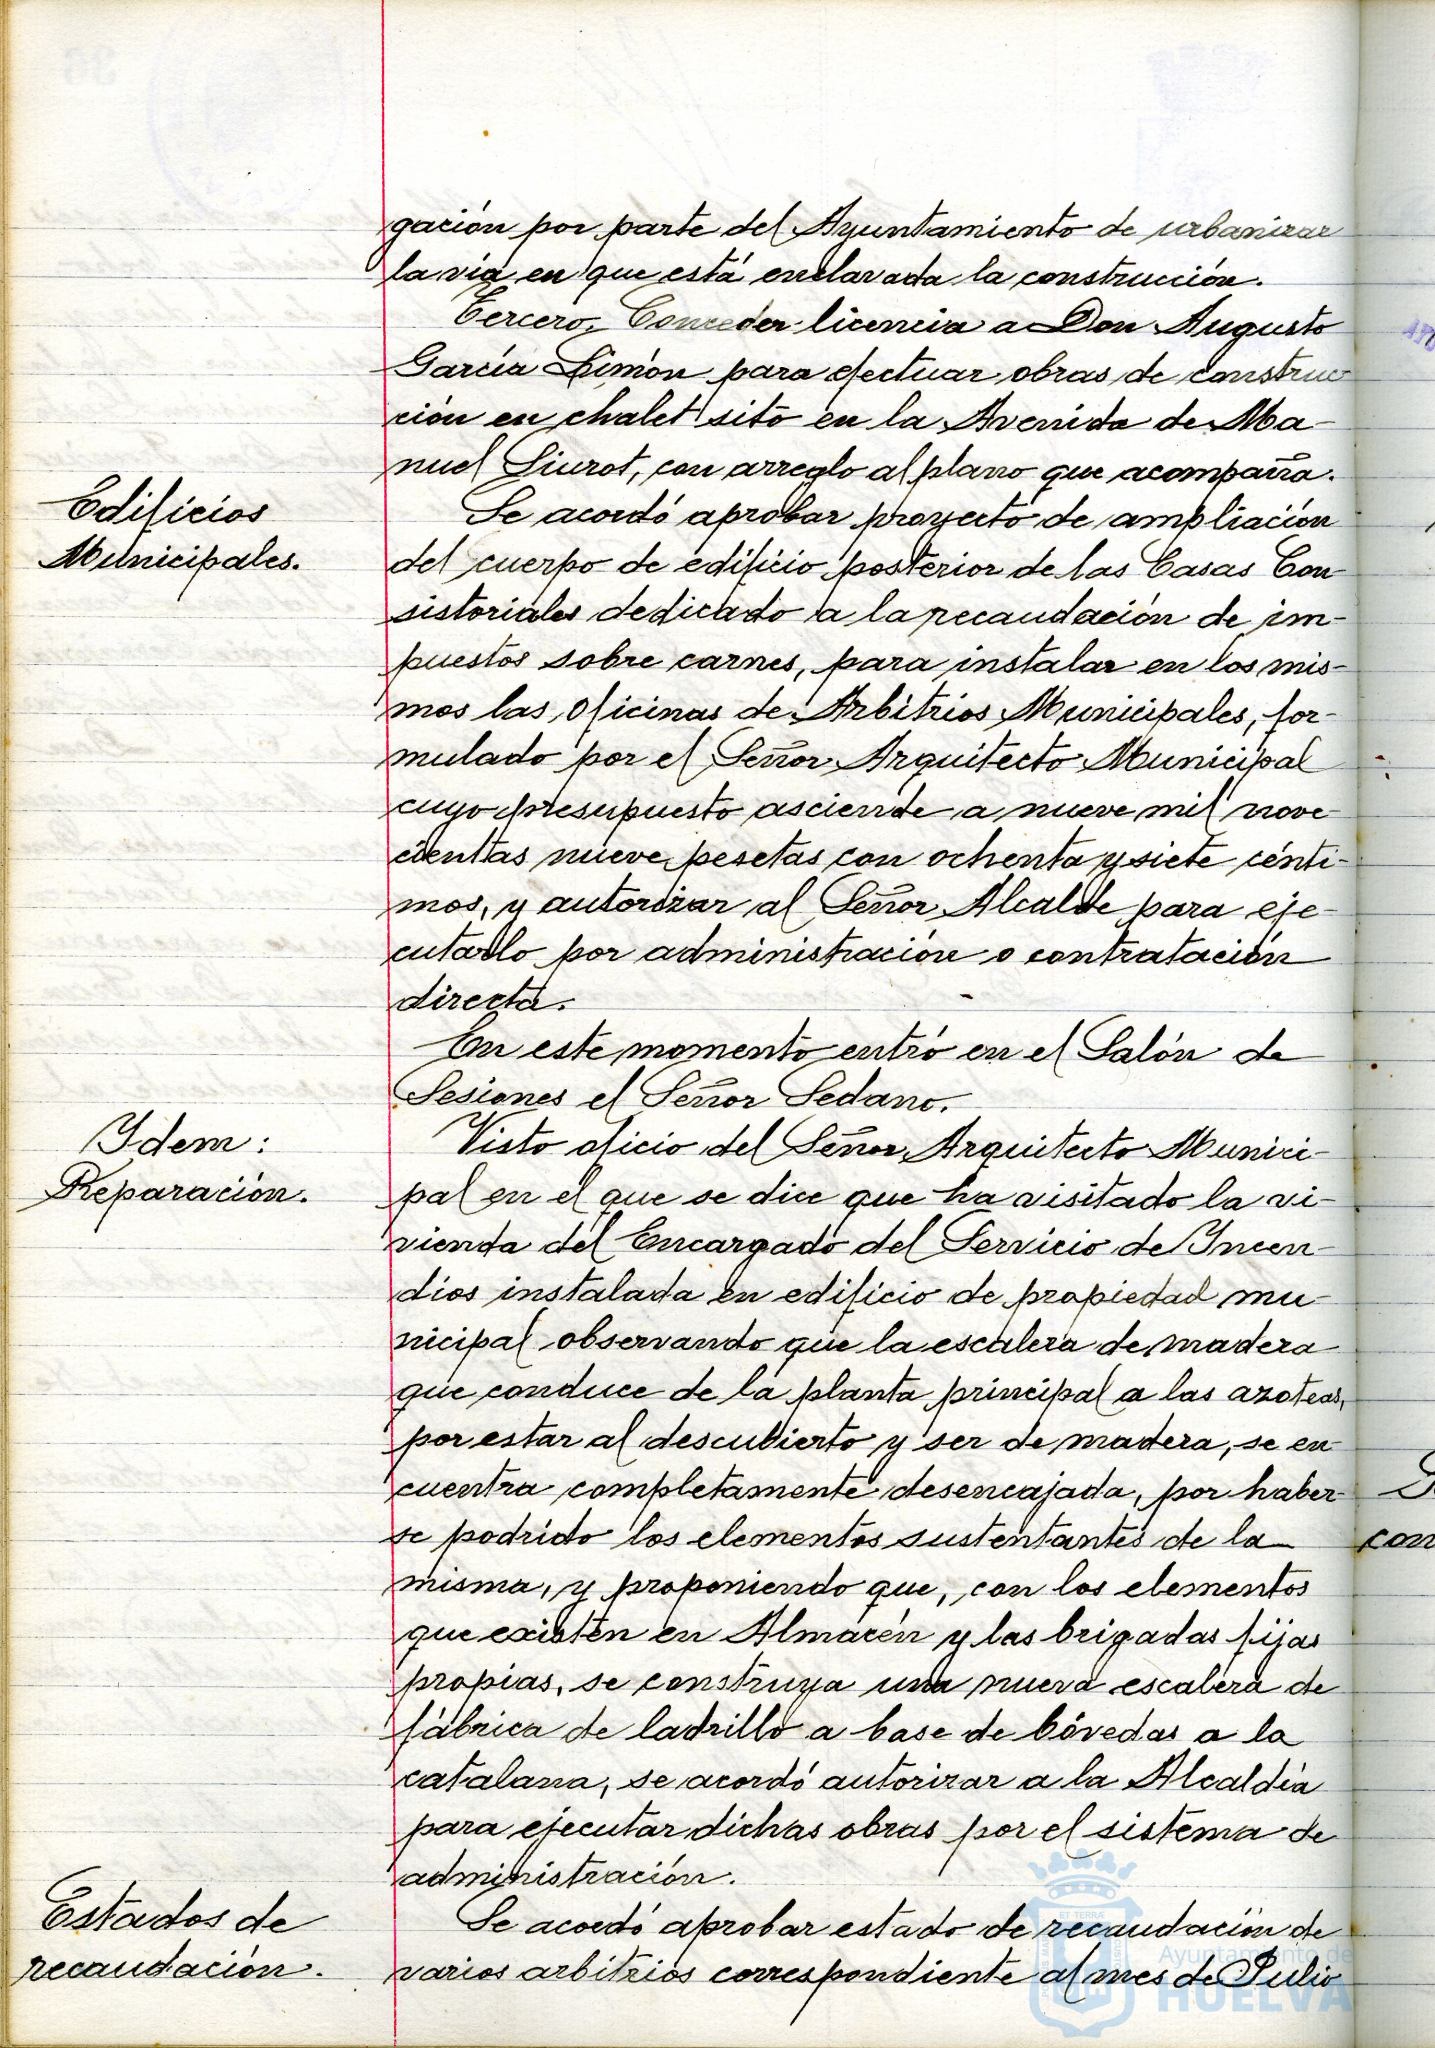 gación por parte del Ayuntamiento de urbanizar
la vía en que está enclavada la construcción.
Tercero. Conceder licencia a Don Augusto
García Limón para efectuar obras de construc
ción en chalet sito en la Avenida de Ma-
nuel Siurot, con arreglo al plano que acompaña.
Edificios
Municipales.
Se acordó aprobar proyecto de ampliación
del cuerpo de edificio posterior de las Casas Con
sistoriales dedicado a la recaudación de im-
puestos sobre carnes, para instalar en los mis-
mos las Oficinas de Arbitrios Municipales, for-
mulado por el Señor Arquitecto Municipal
cuyo presupuesto asciende a nueve mil nove
cientas nueve pesetas con ochenta y siete cénti-
mos, y autorizar al Señor Alcalde para eje-
cutarlo por administración o contratación
directa.
En este momento entró en el Salón de
Sesiones el Señor Sedano.
Idem:
Reparación.
Visto oficio del Señor Arquitecto Munici-
pal en el que se dice que ha visitado la vi-
vienda del Encargado del Servicio de Incen-
dios instalada en edificio de propiedad mu-
nicipal observando que la escalera de madera
que conduce de la planta principal a las azoteas,
por estar al descubierto y ser de madera, se en
cuentra completamente desencajada, por haber
se podrido los elementos sustentantes de la
misma, y proponiendo que, con los elementos
que existen en Almacén y las brigadas fijas
propias, se construya una nueva escalera de
fábrica de ladrillo a base de bóvedas a la
catalana, se acordó autorizar a la Alcaldía
para ejecutar dichas obras por el sistema de
administración.
Estados de
recaudación.
Se acordó aprobar estado de recaudación de
varios arbitrios correspondiente al mes de Julio
con
Ayuntamiento de
HUELVA